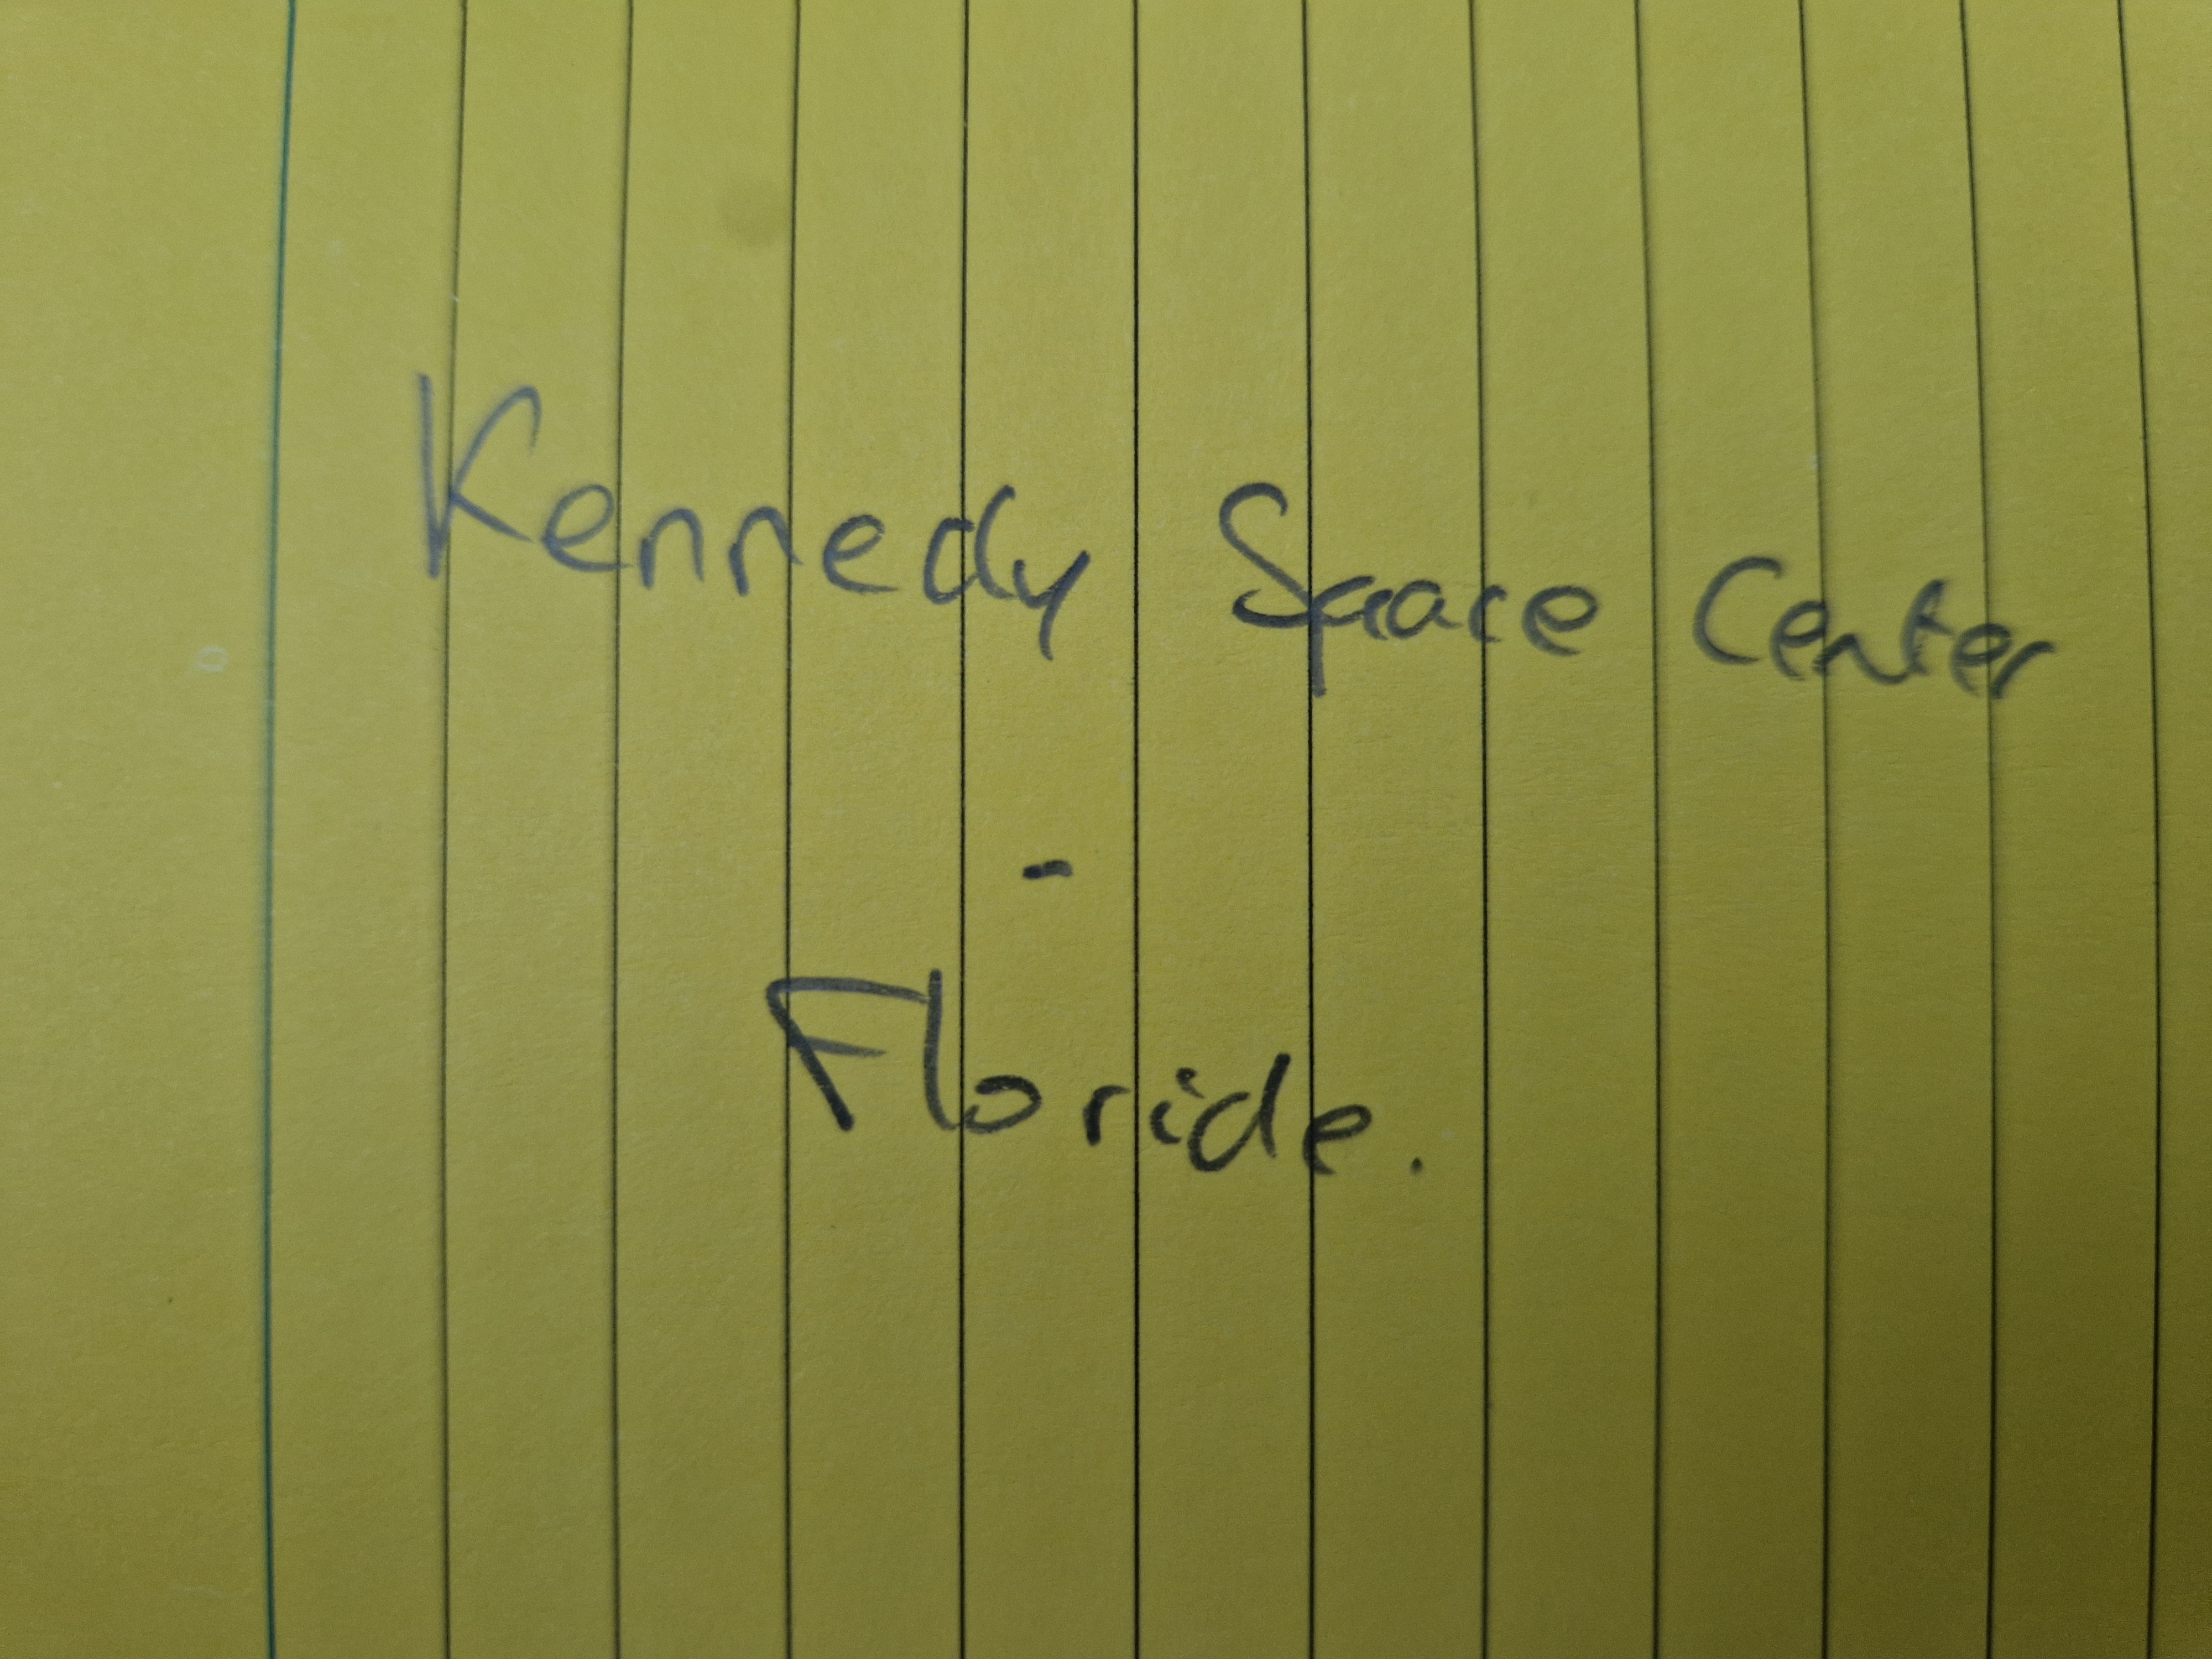 Kennedy Space Center
-
Floride.